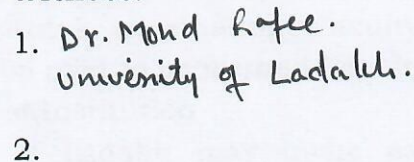 1. Dr. Mohd Rafee.
University of Ladakh.
2.